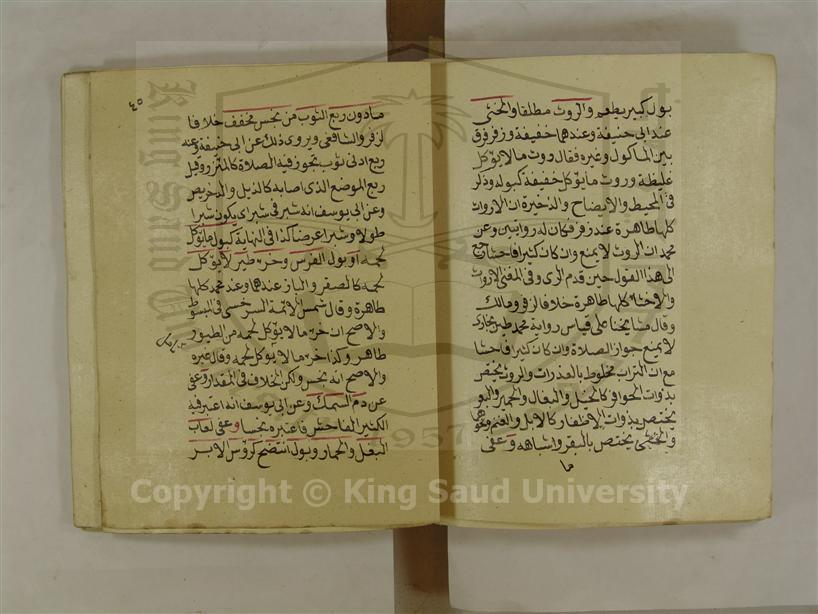 بول كبير يطعم والروث مطلقا والخثي
عند ابى حنيفة وعندهما خفيفة وزفر فرق
بين الماكول وغيره فقال روث مالا يؤكل
غليظة وروث ما يؤكل خفيفة كبوله وذكر
فى المحيط والايضاح والذخيرة ان الاروات
كلها طاهرة عند زفر فكان له روايتين وعن
محمد ان الروث لا يمنع وان كان كثيرا فاحشا رجع
الى هذا القول حين قدم الرى وفى المغنى الاروث
والاخثاء كلها طاهرة خلافا لزفر ومالك
وقال مشايخنا على قياس رواية محمد طين بخارى
لا يمنع جواز الصلاة وان كان كثيرا فاحشا
مع ان التراب مخلوط بالعذرات والروث يختص
بذوات الحوافر كالخيل والبغال والحمار والبعر
يختص بذوات الاظفار كالابل والغنم ونحوهما
والخثى يختص بالبقر واشباهه وعفى
ما
٤٥
مادون ربع الثوب من نجس مخفف خلافا
لزفر والشافعى ويروى ذلك عن ابى حنيفة وعنه
ربع ادنى ثوب تجوز فيه الصلاة كالمئزر وقيل
ربع الموضع الذى اصابه كالذيل والدخريص
وعن ابى يوسف انه شبر فى شبر اى يكون شبرا
طولا وشبرا عرضا كذا فى النهاية كبول ما يؤكل
لحمه او بول الفرس وخرء طير لا يؤكل
لحمه كالصقر والباز عندهما وعند محمد كلها
طاهرة وقال شمس الائمة السرخسى فى المبسوط
والاصح ان خرء مالا يؤكل لحمه من الطيور
طاهر وكذا خرء مالا يؤكل لحمه وقال غيره
والاصح انه نجس ولكن الخلاف فى المقدار وعفى
عن دم السمك وعن ابى يوسف انه اعتبر فيه
الكثير الفاحش فاعتبره نجسا وعفى لعاب
البغل والحمار وبول انتضح كرؤس الابر
Copyright © King Saud University
1957